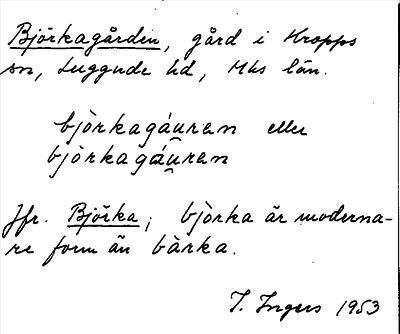 Björkagården, gård i Kropps
sn, Luggude hd, Mhs län.
bjòrkagáuren eller
bjòrkagáu̯ren
Jfr. Björka; bjòrka är moderna-
re form än bàrka.
I. Ingers 1953